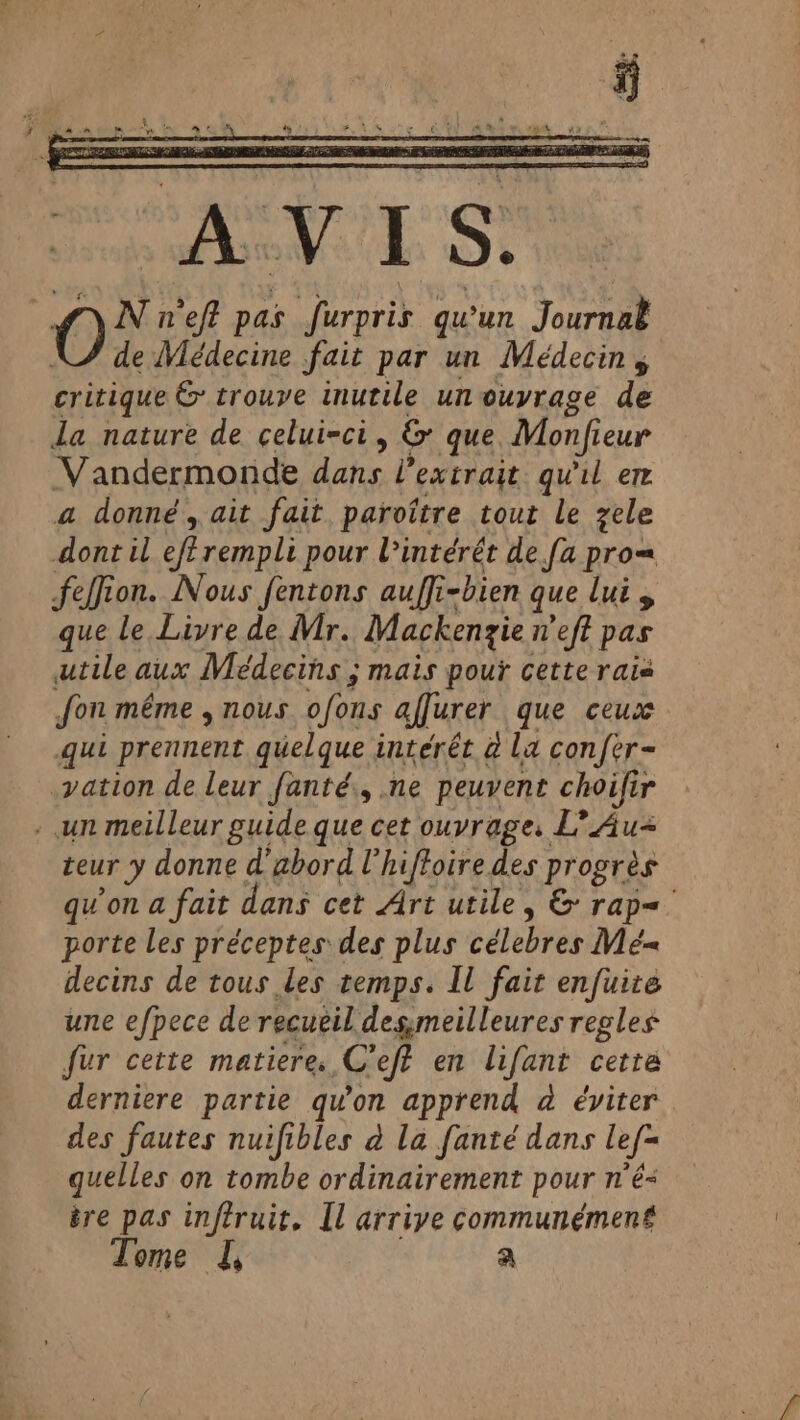 ij
AVIS.
ON n'eſt pas ſurpris qu'un Journal
de Médecine fait par un Médecin,
critique & trouve inutile un ouvrage de
la nature de celui-ci, & que Monſieur
Vandermonde dans l'extrait qu'il en
a donné, ait fait paroître tout le zele
dont il eſt rempli pour l'intérêt de ſa pro-
feſſion. Nous ſentons auſſi-bien que lui,
que le Livre de Mr. Mackenzie n'eſt pas
utile aux Médecins; mais pour cette rai-
ſon même, nous oſons aſſurer que ceux
qui prennent quelque intérêt à la conſer-
vation de leur ſanté, ne peuvent choiſir
un meilleur guide que cet ouvrage. L'Au-
teur y donne d'abord l'hiſtoire des progrès
qu'on a fait dans cet Art utile, & rap-
porte les préceptes des plus célebres Mé-
decins de tous les temps. Il fait enſuite
une eſpece de recueil des meilleures regles
ſur cette matiere. C'eſt en liſant cette
derniere partie qu'on apprend à éviter
des fautes nuiſibles à la ſanté dans leſ-
quelles on tombe ordinairement pour n'ê-
tre pas inſtruit. Il arrive communément
Tome I, a